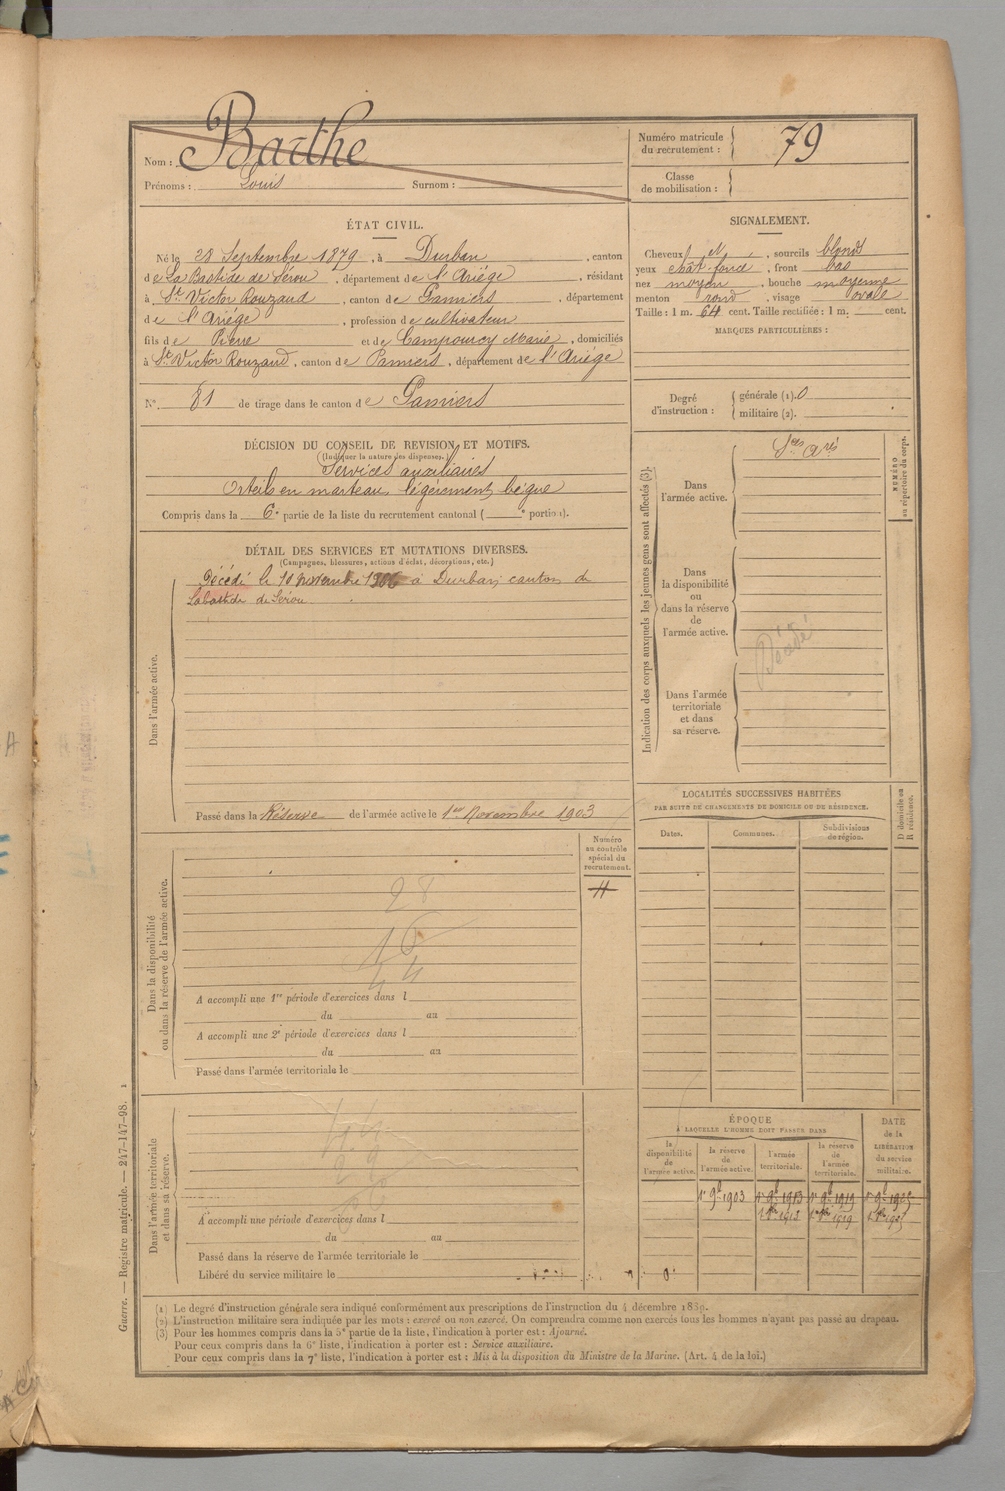 Nom : Barthe
Prénoms : Louis Surnom :
Numéro matricule du recrutement : 79
Classe de mobilisation :
ÉTAT CIVIL.
Né le 28 Septembre 1879, à Durban, canton
de La Bastide de Sérou, département de l'Ariége, résidant
à St Victor Rouzaud, canton de Pamiers, département
de l'Ariége, profession de cultivateur
fils de Pierre et de Campourcy Marie, domiciliés
à St Victor Rouzaud, canton de Pamiers, département de l'Ariége
N° 81 de tirage dans le canton de Pamiers
SIGNALEMENT.
Cheveux et, sourcils blonds
yeux chât. foncé, front bas
nez moyen, bouche moyenne
menton rond, visage ovale
Taille : 1 m. 64 cent. Taille rectifiée : 1 m. cent.
MARQUES PARTICULIÈRES :
Degré d'instruction : générale (1). 0
militaire (2).
DÉCISION DU CONSEIL DE REVISION ET MOTIFS.
(Indiquer la nature des dispenses.)
Services auxiliaires
Orteils en marteau, légèrement bègue
Compris dans la 6e partie de la liste du recrutement cantonal ( e portion).
DÉTAIL DES SERVICES ET MUTATIONS DIVERSES.
(Campagnes, blessures, actions d'éclat, décorations, etc.)
Dans l'armée active.
Décédé le 10 novembre 1906 à Durban canton de
Labastide de Sérou
Passé dans la Réserve de l'armée active le 1er Novembre 1903
Indication des corps auxquels les jeunes gens sont affectés (3).
NUMÉRO au répertoire du corps.
Dans l'armée active.
Sces Ares
Dans la disponibilité ou dans la réserve de l'armée active.
Décédé
Dans l'armée territoriale et dans sa réserve.
LOCALITÉS SUCCESSIVES HABITÉES
PAR SUITE DE CHANGEMENTS DE DOMICILE OU DE RÉSIDENCE.
Dates. Communes. Subdivisions de région. D domicile ou R résidence.
Dans la disponibilité ou dans la réserve de l'armée active.
Numéro au contrôle spécial du recrutement.
28
16
44
A accompli une 1re période d'exercices dans l
du au
A accompli une 2e période d'exercices dans l
du au
Passé dans l'armée territoriale le
Dans l'armée territoriale et dans sa réserve.
A accompli une période d'exercices dans l
du au
Passé dans la réserve de l'armée territoriale le
Libéré du service militaire le
ÉPOQUE
A LAQUELLE L'HOMME DOIT PASSER DANS
la disponibilité de l'armée active. la réserve de l'armée active. l'armée territoriale. la réserve de l'armée territoriale.
DATE de la LIBÉRATION du service militaire.
1er 9bre 1903 1er 9bre 1913 1er 9bre 1919
(1) Le degré d'instruction générale sera indiqué conformément aux prescriptions de l'instruction du 4 décembre 1889.
(2) L'instruction militaire sera indiquée par les mots : exercé ou non exercé. On comprendra comme non exercés tous les hommes n'ayant pas passé au drapeau.
(3) Pour les hommes compris dans la 5e partie de la liste, l'indication à porter est : Ajourné.
Pour ceux compris dans la 6e liste, l'indication à porter est : Service auxiliaire.
Pour ceux compris dans la 7e liste, l'indication à porter est : Mis à la disposition du Ministre de la Marine. (Art. 4 de la loi.)
Guerre. — Registre matricule. — 247-147-98. 1